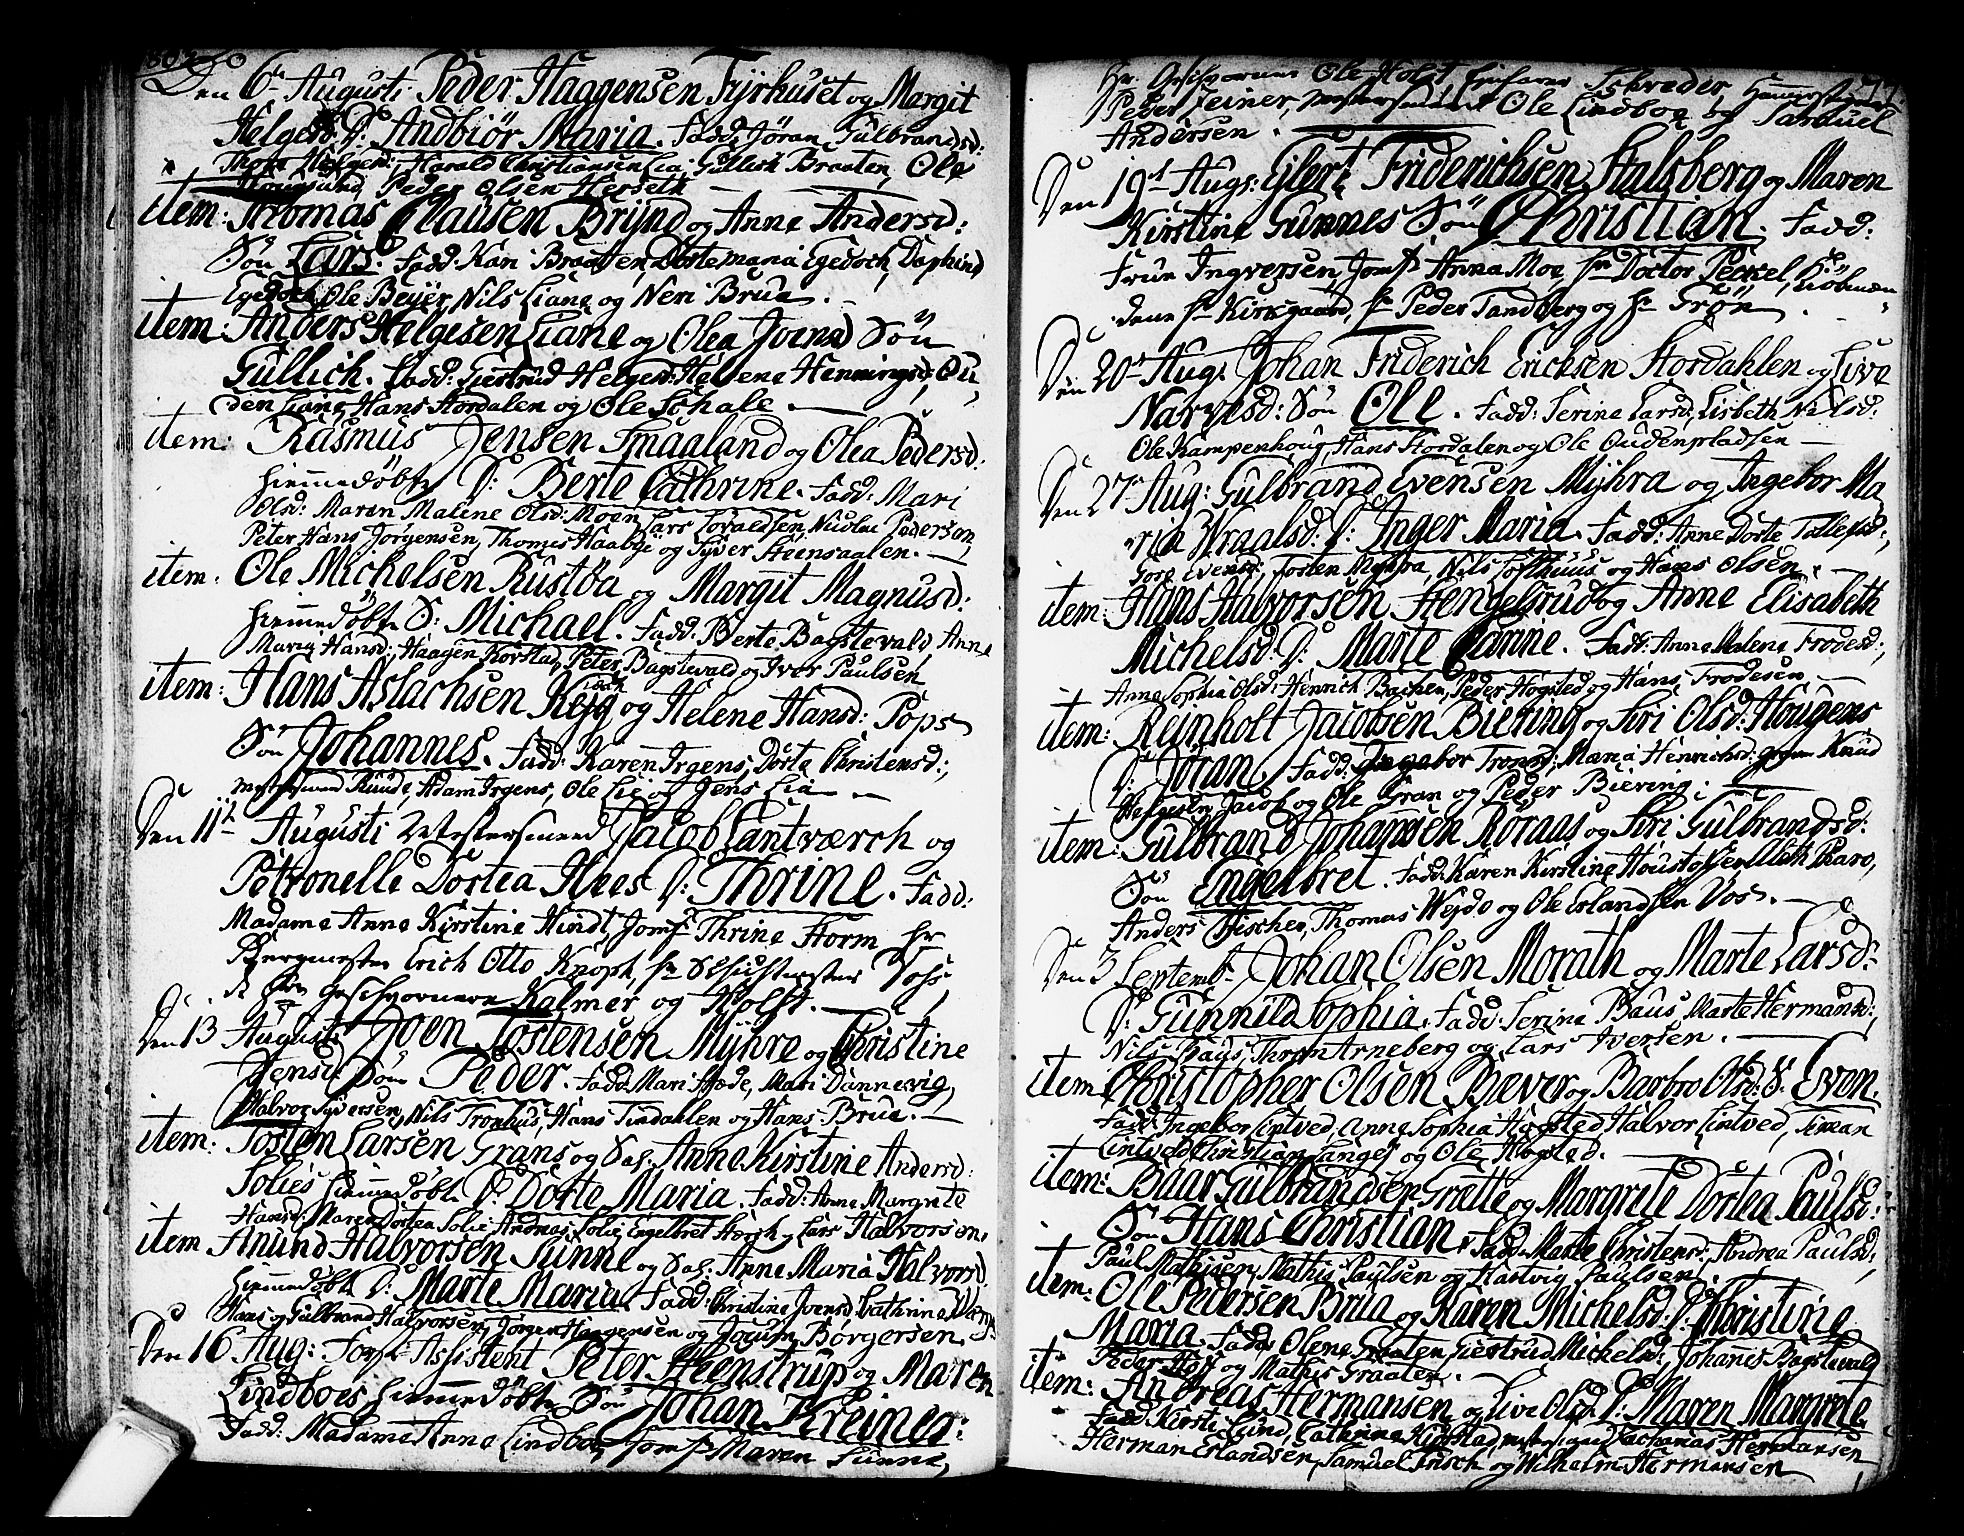 Den 6te Augusti Peder Haggensen Fyrhuset og Margit
Helgesd: D: Andbiör Maria. Fadd: Jöran Gulbrandsd:
Harald Christiansen Lia, Gullich Braaten, Ole
Hougsund, Peder Olsen Herseth
item: Thomas Clausen Brynd og Anne Andersd:
Sön Lars. Fadd: Kari Braaten, Dortemaria Egedoch, Daphind
Egedoch, Ole Beyer, Nils Liane og Neri Brua.
item: Anders Helgesen Liane og Olea Joensd Sön
Gullich. Fadd: Giertrud Helgesd: Helene Henningsd, Ou,,
den Liane, Hans Stordalen og Ole Schale
item: Rasmus Jensen Smaaland og Olea Pedersd:
hiemmedöbte D: Berte Cathrine. Fadd: Mari
Olsd: Maren Malene Olsd: Moen, Lars Toraldsen, Nicolai Pedersen,
Peter Hans Jörgensen, Thomas Haabye og Syver Steensaalen.
item: Ole Michelsen Rustöa og Margit Magnusd:
hiemmedöbte S: Michael. Fadd: Berte Bagstevald, Anne
Maria Hansd:, Haagen Korstad, Peter Bagstevald og Iver Paulsen
item: Hans Aslachsen og Helene Hansd: Pops
Sön Johannes. Fadd: Karen Irgens, Dorte Christensd:,
mestersvend Ruude, Adam Irgens, Ole Lie og Jens Lia
Den 11te Augusti Jacob Santværch og
Petronelle Dortea Hees D: Thrine. Fadd:
Madame Anne Kirstine Hindt, Jomf: Thrine Storm hr
Bergmester Erich Otto Knoph, hr
geschvornere Kalmer og Holst.
Den 13 Augusti Joen Tostensen Myhre og Christine
Jensd Sön Peder. Fadd: Mari Hæde, Mari Dannevig
Halvor Syversen, Nils Tronhus, Hans Tindahlen og Hans Brua.
item: Tosten Larsen Grans og Sal. Anne Kirstine Andersd:
Solies hiemmedöbte D: Dorte Maria. Fadd: Anne Margrete
Hansd: Maren Dortea Solie, Andreas Solie, Engelbret Storch, Lars Halvorsen.
item Anund Halvorsen Sunne og Sal. Anne Maria Halvorsd
hiemmedöbte D: Marte Maria. Fadd: Christine Joensd: Cathrine
Haas og Gulbrand Halvorsen, Jörgen Haagensen og Jocum Börgersen.
Den 16 Aug: Assistent Peter Heenstrup og Maren
Lindboes hiemmedöbte Sön Johan Kreiner:
Fadd: Madame Anne Lindboe, Jomf: Maren Sunne,
Hr. Geschvorner Ole Holst, Schreder,
Peder Feiner, Ole Lindboe og Samuel
Andersen.
Den 19d Augs: Eilert Friderichsen Stalsberg og Maren
Kirstine Gunnes Sön Christian. Fadd:
Frue Ingversen, Jomf: Anna Moe, hr Doctor Peckel, Kiöbmæn,,
dene hr Kirkgaard, hr Peder Tandberg og hr Grön.
Den 20de Aug: Johan Friderich Erichsen Stordahlen og Live
Narvesd: Sön Ole. Fadd: Serine Larsd: Lisbeth Nilsd:
Ole Kampenhoug, Hans Stordalen og Ole Oudenpladsen
Den 27de Aug: Gulbrand Evensen Myhra og Ingebor Ma,,
ria Wraalsd: D: Inger Maria. Fadd: Anne Dorte Tollefsd:,
Goro Evensd:, Tosten Myhra, Nils Lofthuus og Hans Olsen.
item: Hans Halvorsen Hengelsrud og Anne Elisabeth
Michelsd: D: Marte Carine. Fadd: Anne Malene Frodesd:,
Anne Sophia Olsd: Henrich Bachen, Peder Hogsted og Hans Frodesen,
item: Reinholt Jacobsen Biering og Siri Olsd: Hougens
D: Jöran. Fadd: Ingebor Tronsd:, Maria Henrichsd: Knud
Helgesen, Jacob og Ole Gran og Peder Biering.
item: Gulbrand Johansen Roraas og Siri Gulbrandsd:
Sön Engelbret. Fadd: Karen Kirstine Houstogsen, Alleth Pharo,
Anders Fischer, Thomas Weydo og Ole Erlandsen Vos.
Den 3 Septembr Johan Olsen Morath og Marte Larsd:
D: Gunnild Sophia. Fadd: Serine Baus, Marte Hermansd:,
Nils Baus, Thron Arneberg og Lars Iversen.
item Christopher Olsen Bæver og Barbro Olsd: S: Even.
Fadd: Ingebor Lintved, Anne Sophia Hogsted, Halvor Lintved, Simean
Lintved, Christian Langes og Ole Hogsted.
item: Baar Gulbrandsen Grette og Margrete Dortea Paulsd:
Sön Hans Christian. Fadd: Marte Christensd:, Andrea Paulsd:,
Paul Mathisen, Mathis Paulsen og Hartvig Paulsen.
item: Ole Pedersen Brua og Karen Michelsd: D: Christine
Maria. Fadd: Olene Graaten, Giertrud Michelsd:, Johannes Bagstevald
Peder Hoff og Mathis Graaten.
item: Andreas Hermansen og Live Olsd: D: Maren Margrete.
Fadd: Kirsti Lund, Cathrine Zacharias Hermansen
Herman Erlandsen, Samuel Frisch og Wilhelm Hermansen